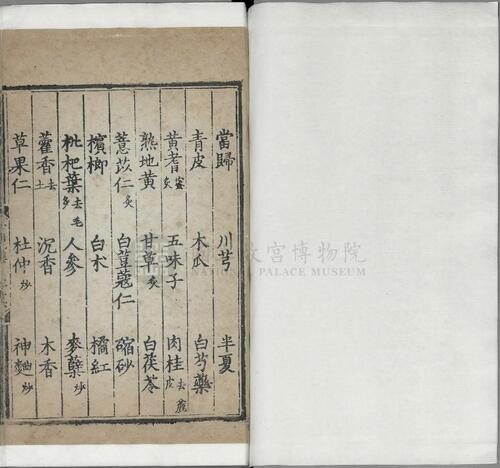 當歸 川芎 半夏
青皮 木瓜 白芍藥
黃耆蜜炙 五味子 肉桂去麄皮
熟地黃 甘草炙 白茯苓
薏苡仁炙 白荳蔻仁 縮砂
檳榔 白朮 橘紅
枇杷葉去毛炙 人參 麥蘗炒
藿香去土 沉香 木香
草果仁 杜仲炒 神麯炒
故宮博物院
NATIONAL PALACE MUSEUM